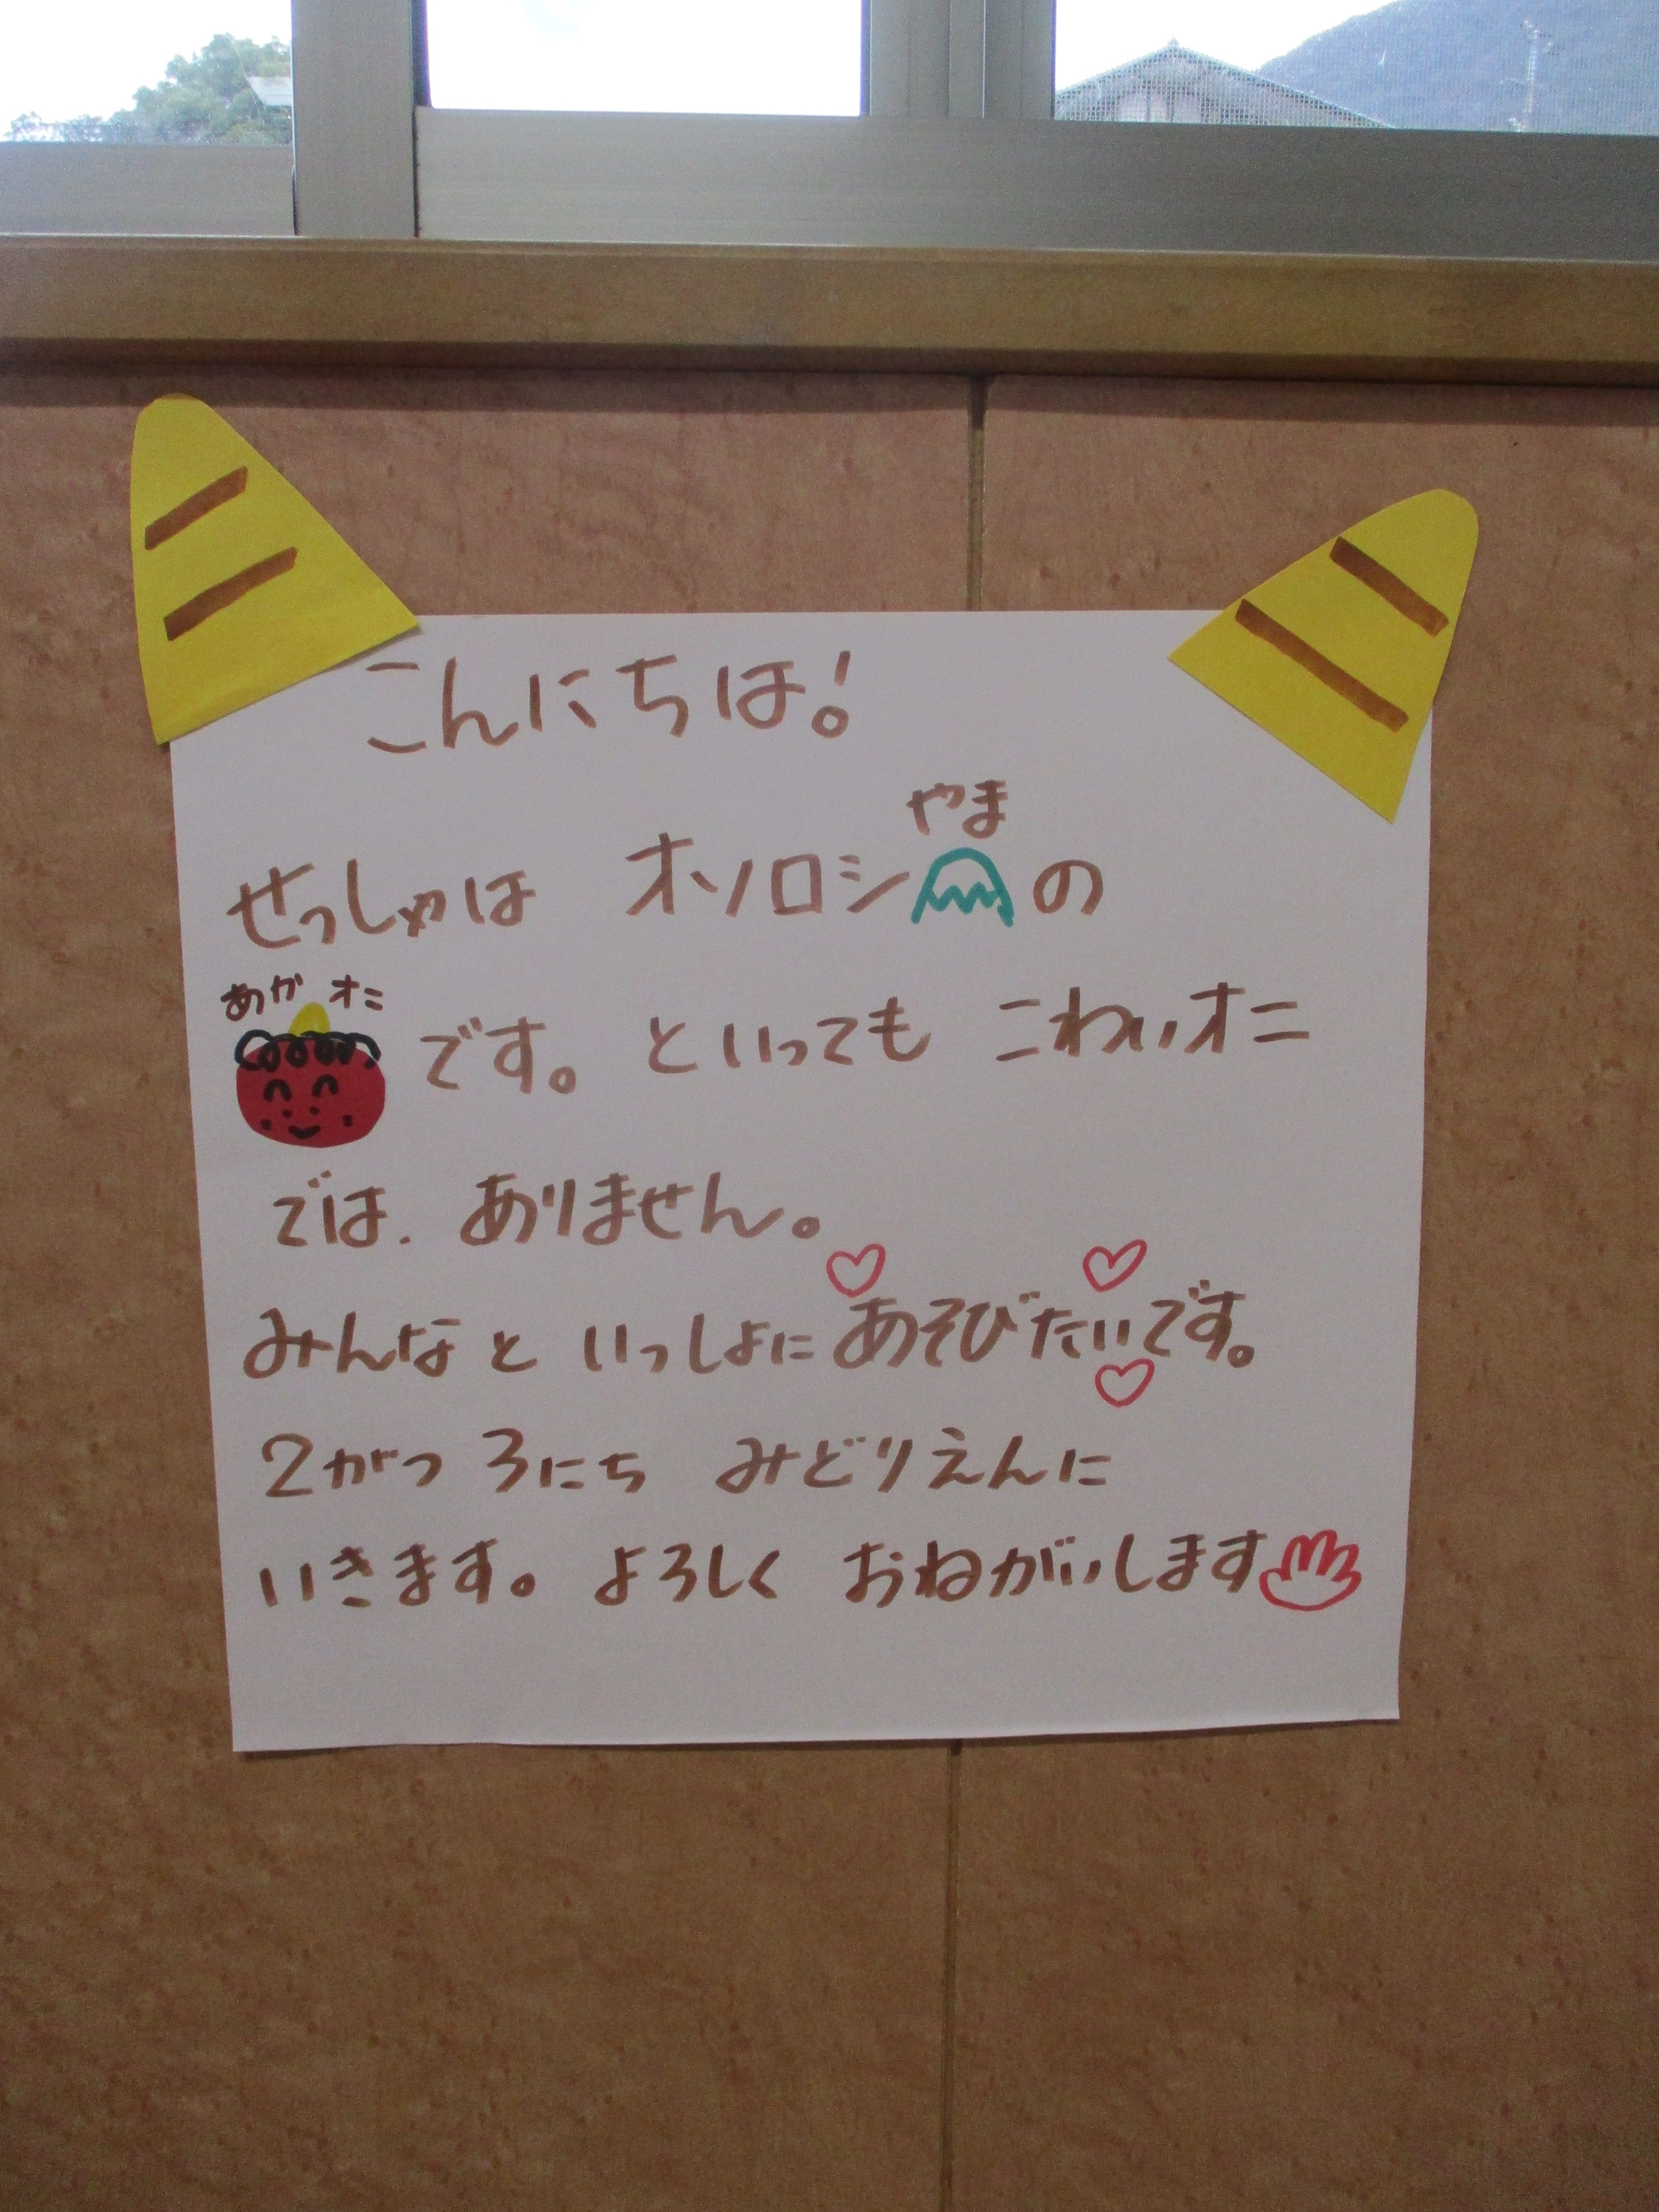 こんにちは!
やま
せっしゃは オソロシの
あかオニ
です。といっても こわいオニ
では ありません。
みんなと いっしょに あそびたいです。
2がつ 3にち みどりえんに
いきます。よろしく おねがいします